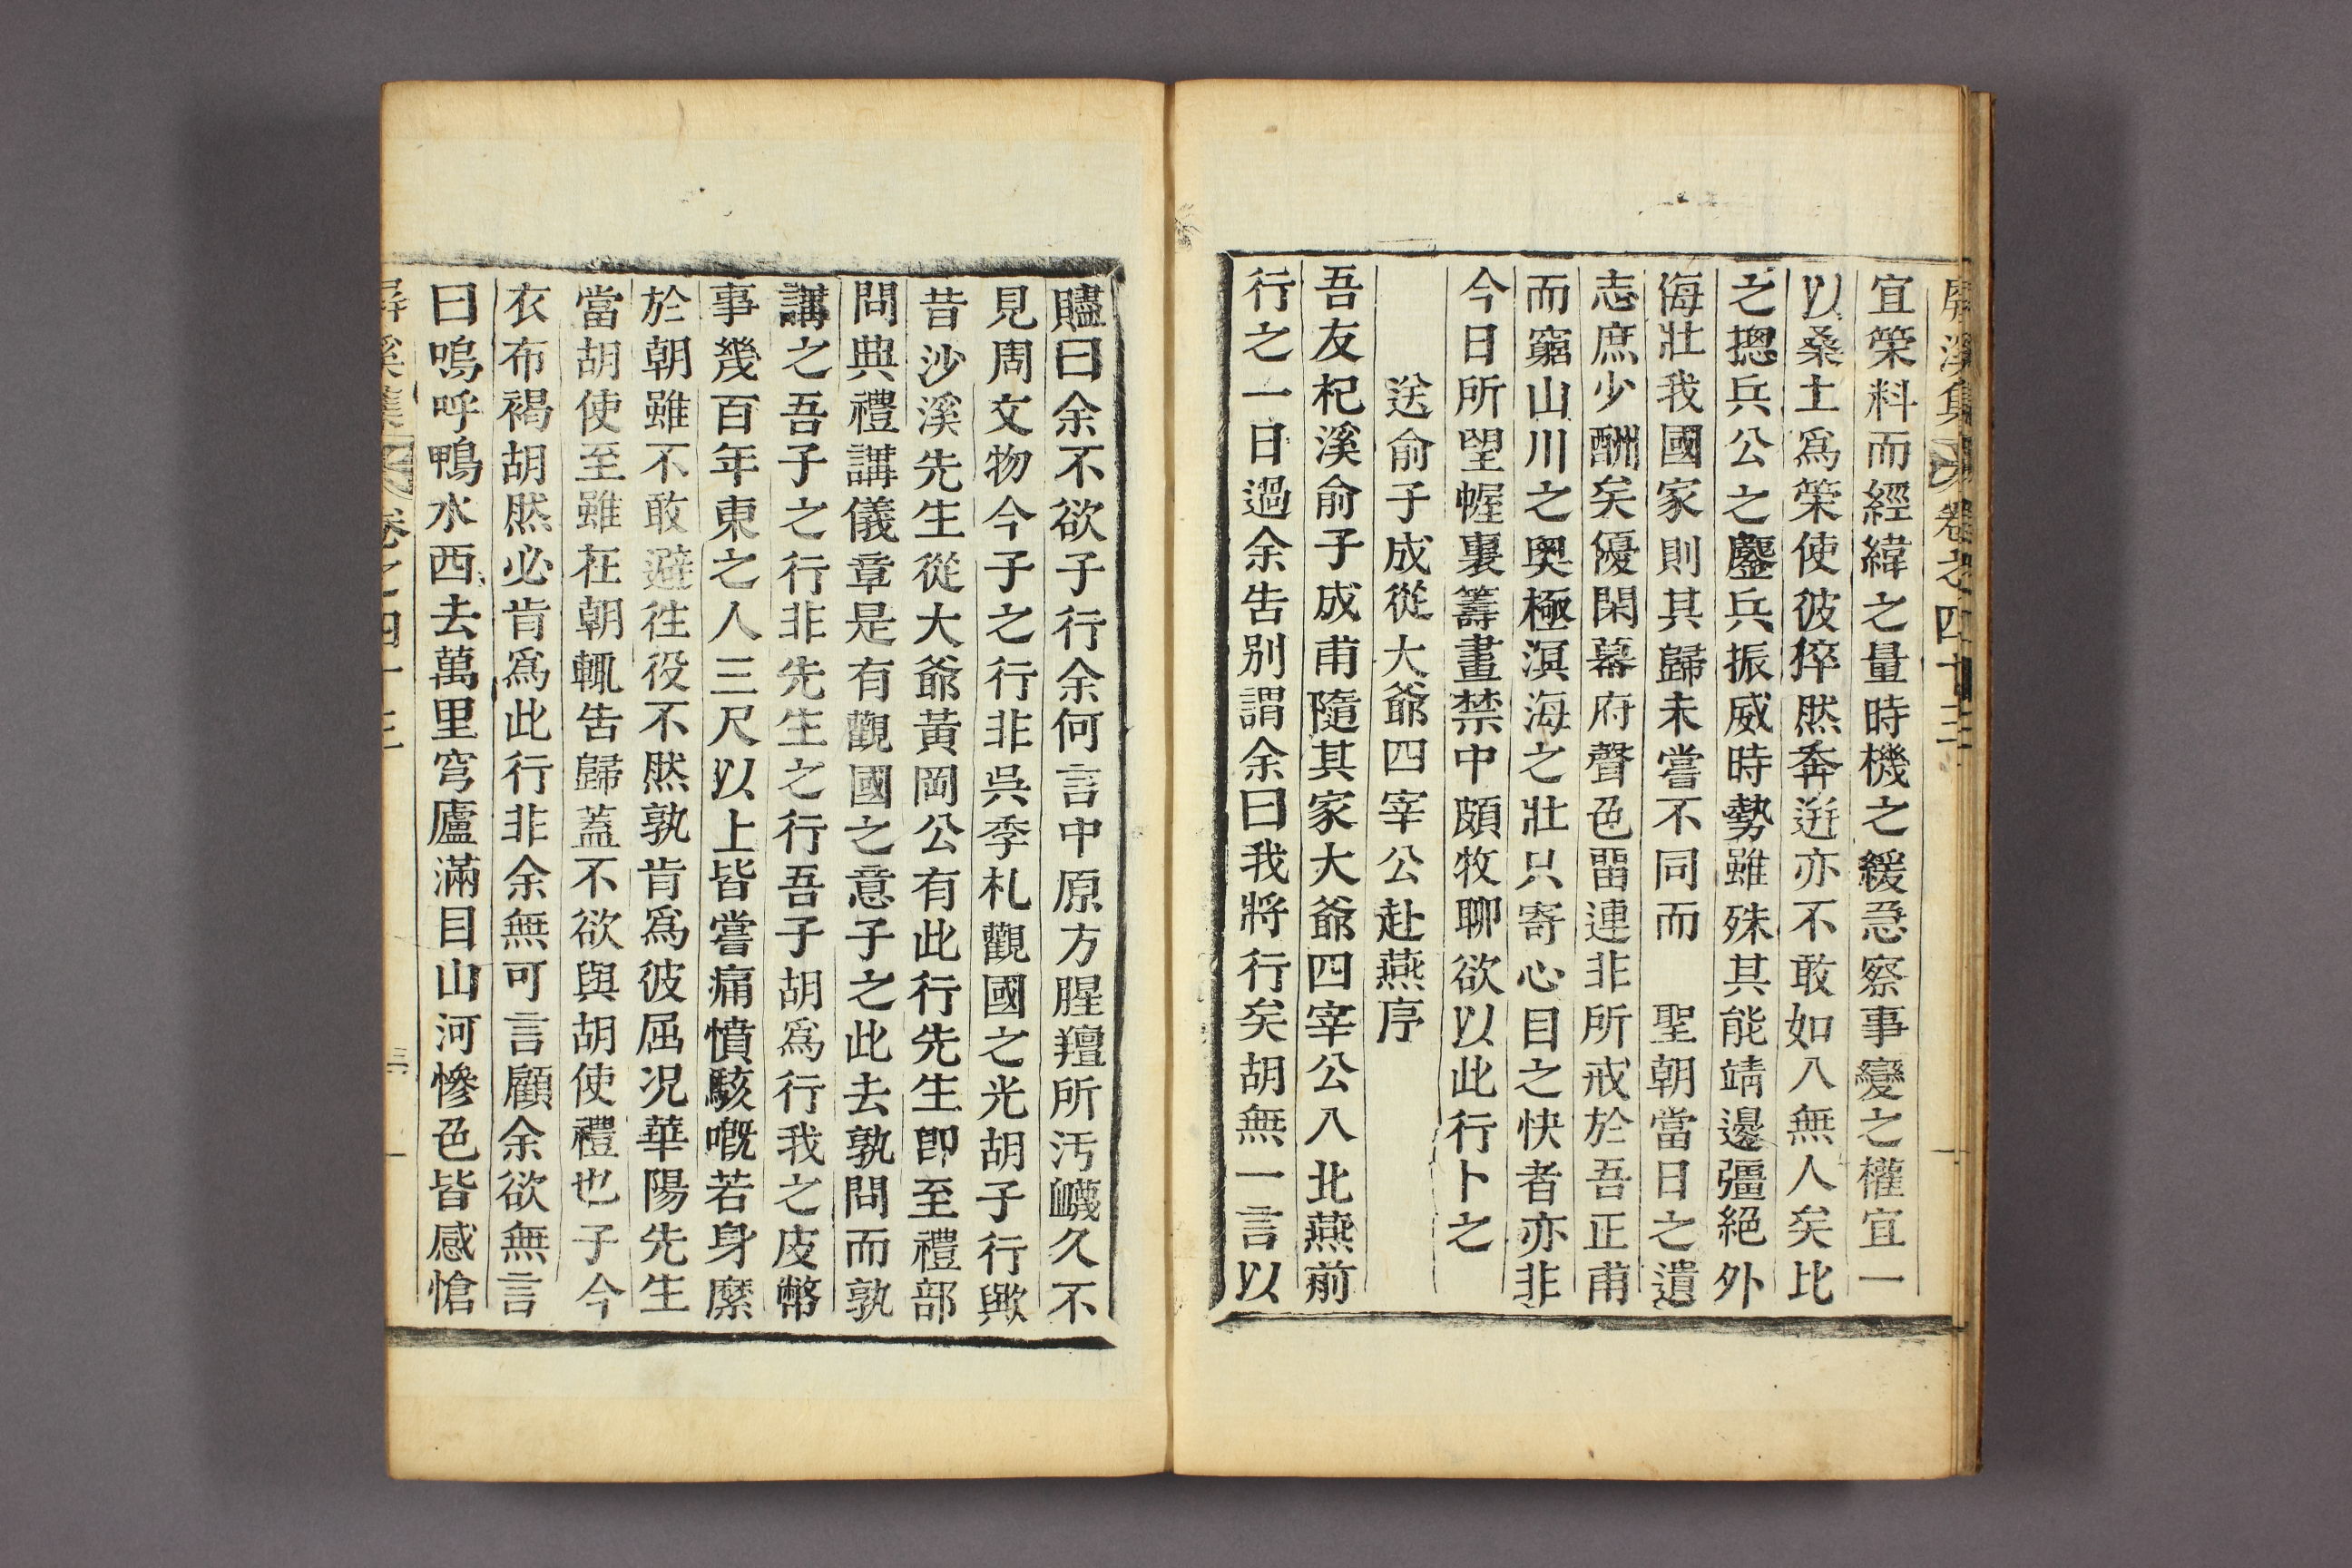 屛溪集 卷之四十三
宜策料而經緯之量時機之緩急察事變之權宜一
以桑土爲策使彼猝然奔逬亦不敢如入無人矣比
之摠兵公之鏖兵振威時勢雖殊其能靖邊彊絕外
侮壯我國家則其歸未嘗不同而 聖朝當日之遺
志庶少酬矣優閑幕府聲色留連非所戒於吾正甫
而窮山川之奧極溟海之壯只寄心目之快者亦非
今日所望幄裏籌畫禁中頗牧聊欲以此行卜之
送俞子成從大爺四宰公赴燕序
吾友杞溪俞子成甫隨其家大爺四宰公入北燕前
行之一日過余告別謂余曰我將行矣胡無一言以
贐曰余不欲子行余何言中原方腥羶所汚衊久不
見周文物今子之行非吳季札觀國之光胡子行歟
昔沙溪先生從大爺黃岡公有此行先生卽至禮部
問典禮講儀章是有觀國之意子之此去孰問而孰
講之吾子之行非先生之行吾子胡爲行我之皮幣
事幾百年東之人三尺以上皆嘗痛憤駭嘅若身縻
於朝雖不敢避往役不然孰肯爲彼屈况華陽先生
當胡使至雖在朝輒告歸蓋不欲與胡使禮也子今
衣布褐胡然必肯爲此行非余無可言顧余欲無言
曰嗚呼鴨水西去萬里穹廬滿目山河慘色皆感愴
屛溪集 卷之四十三 三